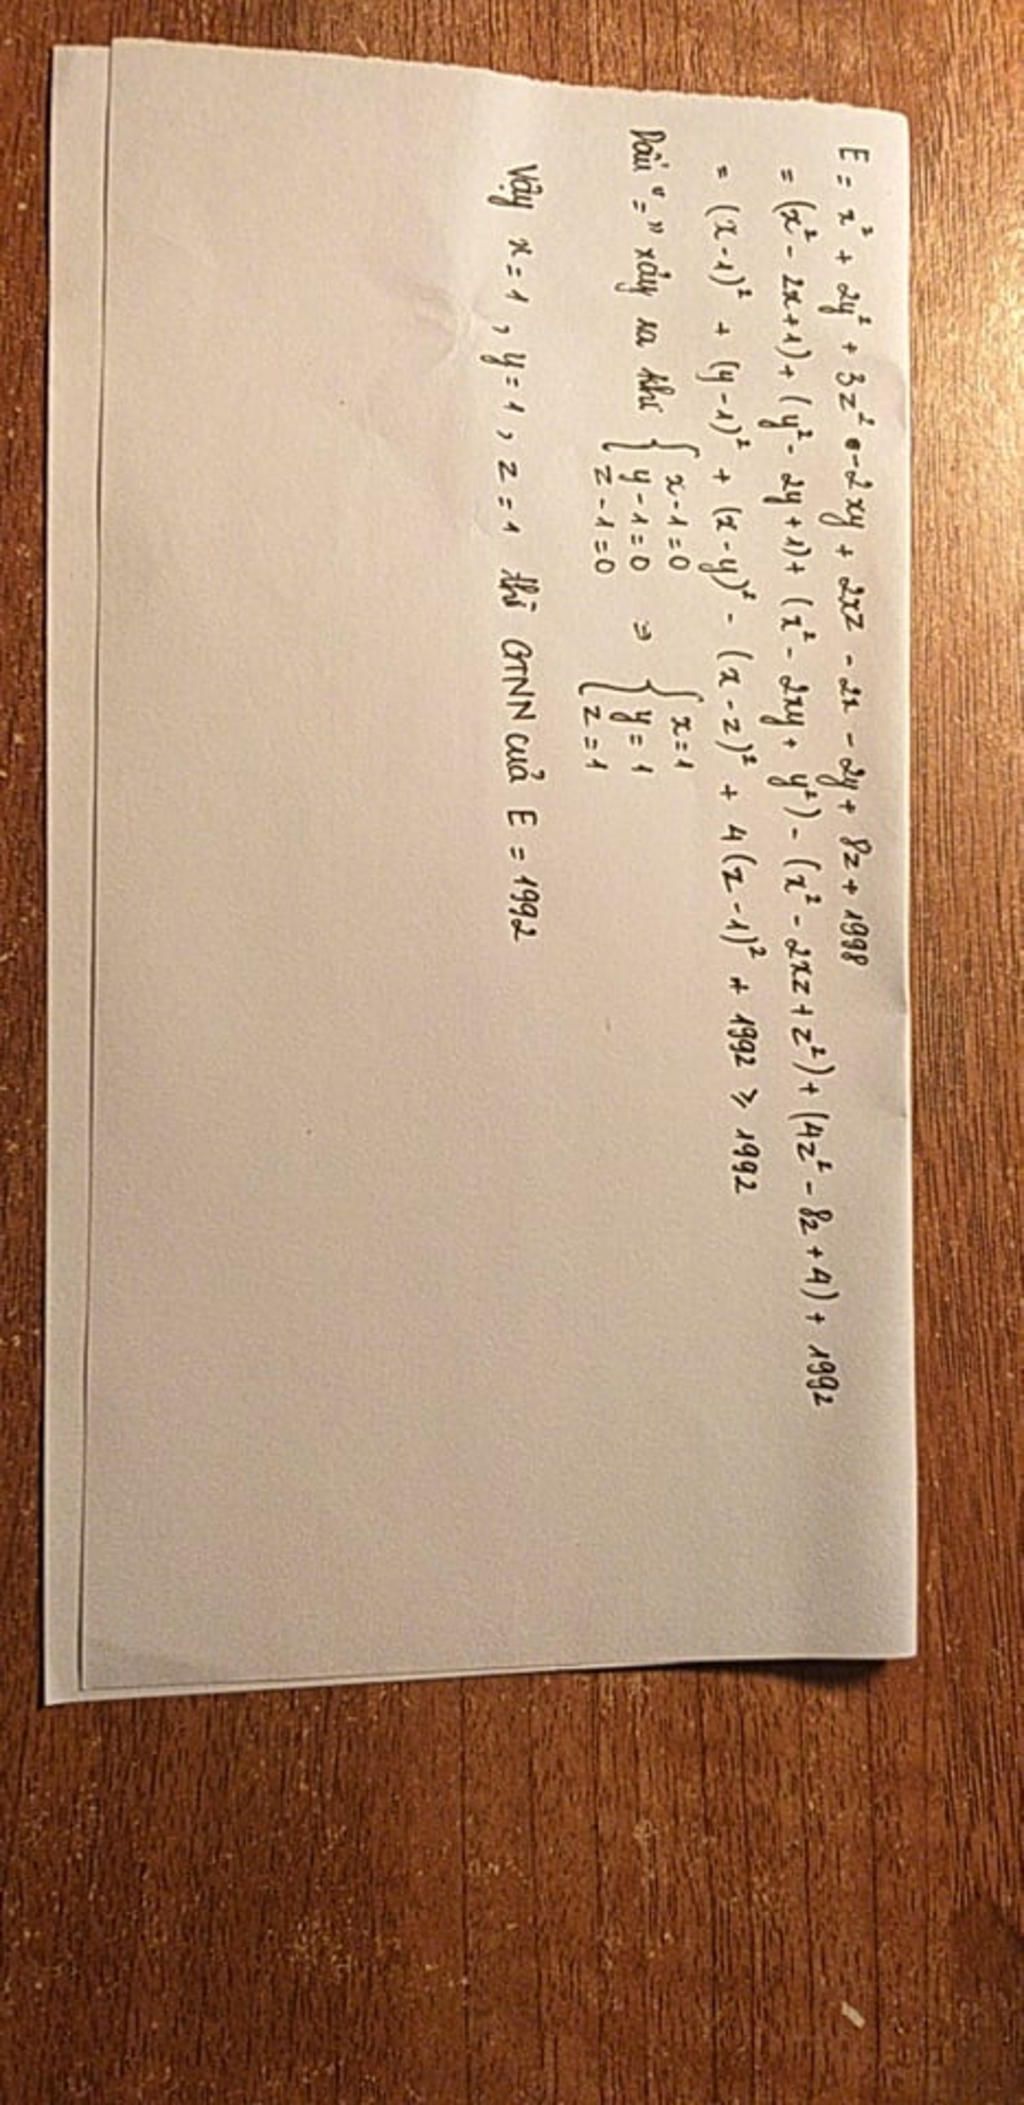 E = x² + 2y² + 3z² - 2xy + 2xz - 2x - 2y + 8z + 1998
= (x² - 2x + 1) + (y² - 2y + 1) + (x² - 2xy + y²) - (x² - 2xz + z²) + (4z² - 8z + 4) + 1992
= (x - 1)² + (y - 1)² + (x - y)² - (x - z)² + 4(z - 1)² + 1992 ⩾ 1992
Dấu "=" xảy ra khi { x - 1 = 0 ⇒ { x = 1
y - 1 = 0 y = 1
z - 1 = 0 z = 1
Vậy x = 1, y = 1, z = 1 thì GTNN của E = 1992